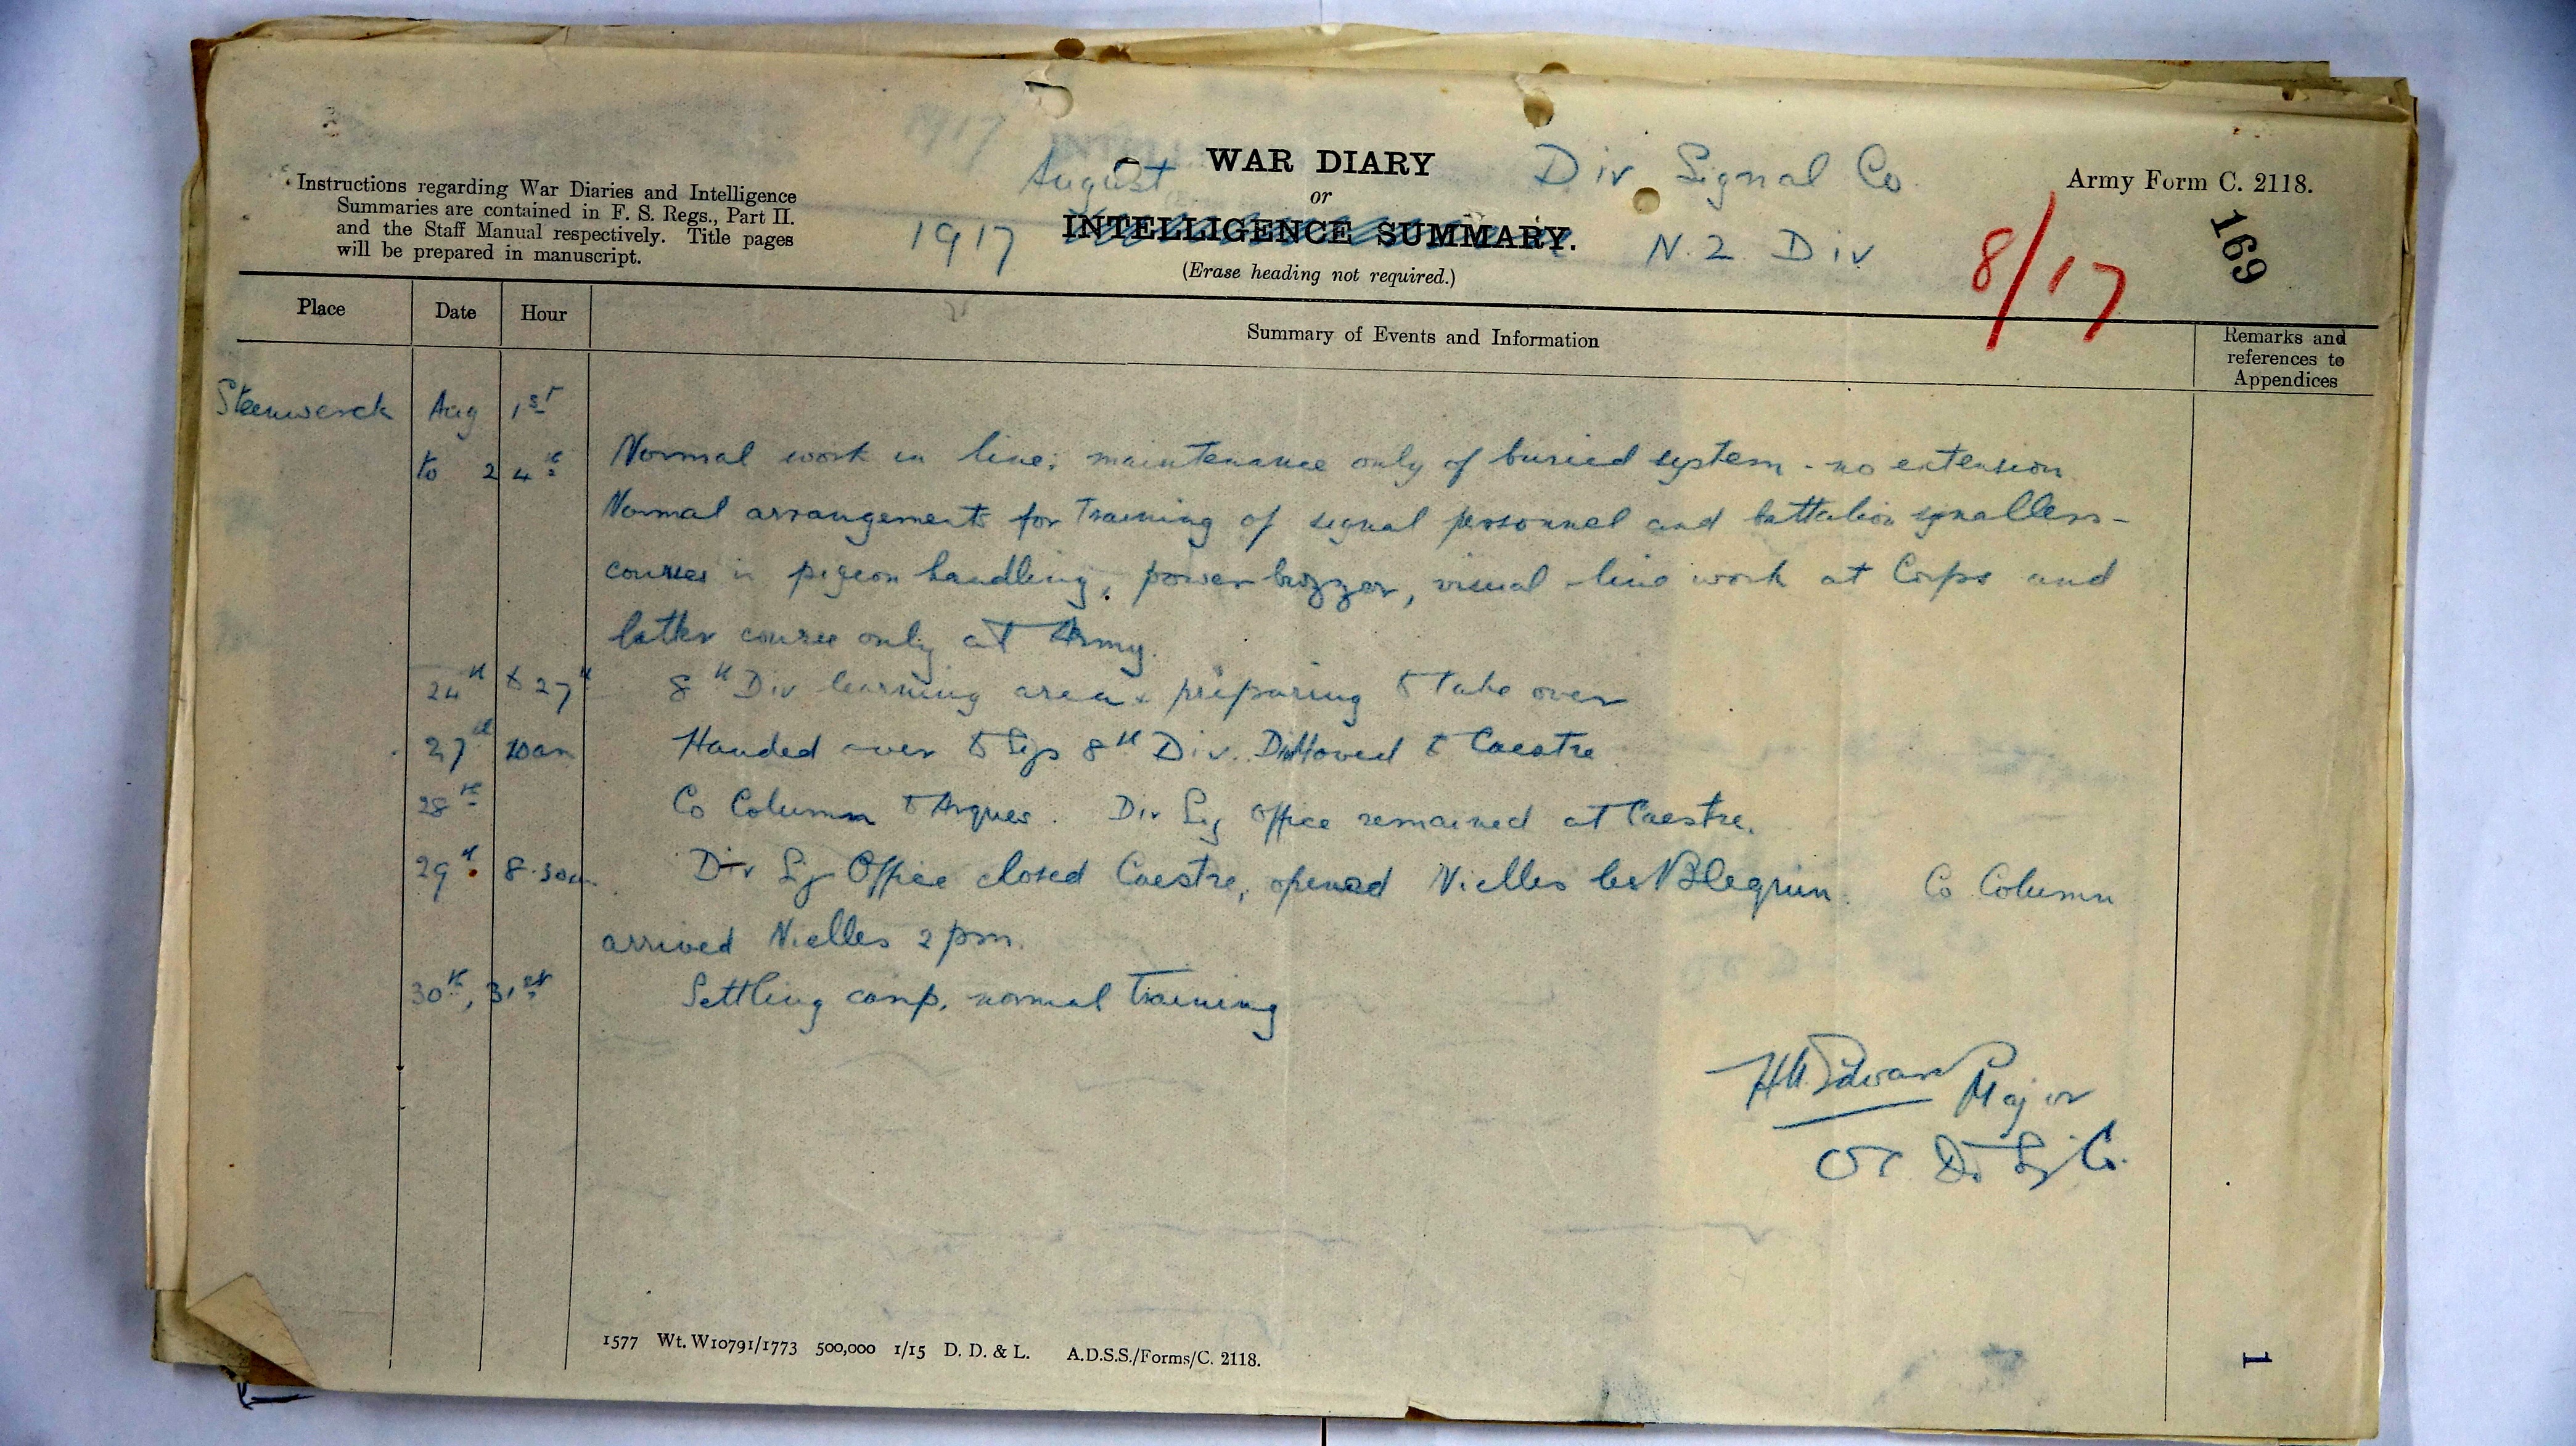 Instructions regarding War Diaries and Intelligence
Summaries are contained in F. S. Regs., Part II.
and the Staff Manual respectively. Title pages
will be prepared in manuscript.
August
1917
WAR DIARY
or
INTELLIGENCE SUMMARY.
(Erase heading not required.)
Div Signal Co
N.Z Div
Army Form C. 2118.
8/17
169
Place
Date
Hour
Summary of Events and Information
Remarks and
references to
Appendices
Steenwerck Aug 1st
to 24th Normal work in line; maintenance only of buried system - no extension
Normal arrangements for training of signal personnel and battalion signallers -
courses in pigeon handling, power buzzer, visual line work at Corps and
latter course only at Army.
24th to 27th 8th Div learning area & preparing to take over
27th 10am Handed over to Sigs 8th Div. Div Moved to Caestre
28th Co Column to Arques. Div Sig Office remained at Caestre.
29th 8.30am Div Sig Office closed Caestre, opened Nielles les Blequin. Co Column
arrived Nielles 2 pm.
30th, 31st Settling camp, normal training
Major
OC Div Sig Co.
1577 Wt. W10791/1773 500,000 1/15 D. D. & L. A.D.S.S./Forms/C. 2118.
1